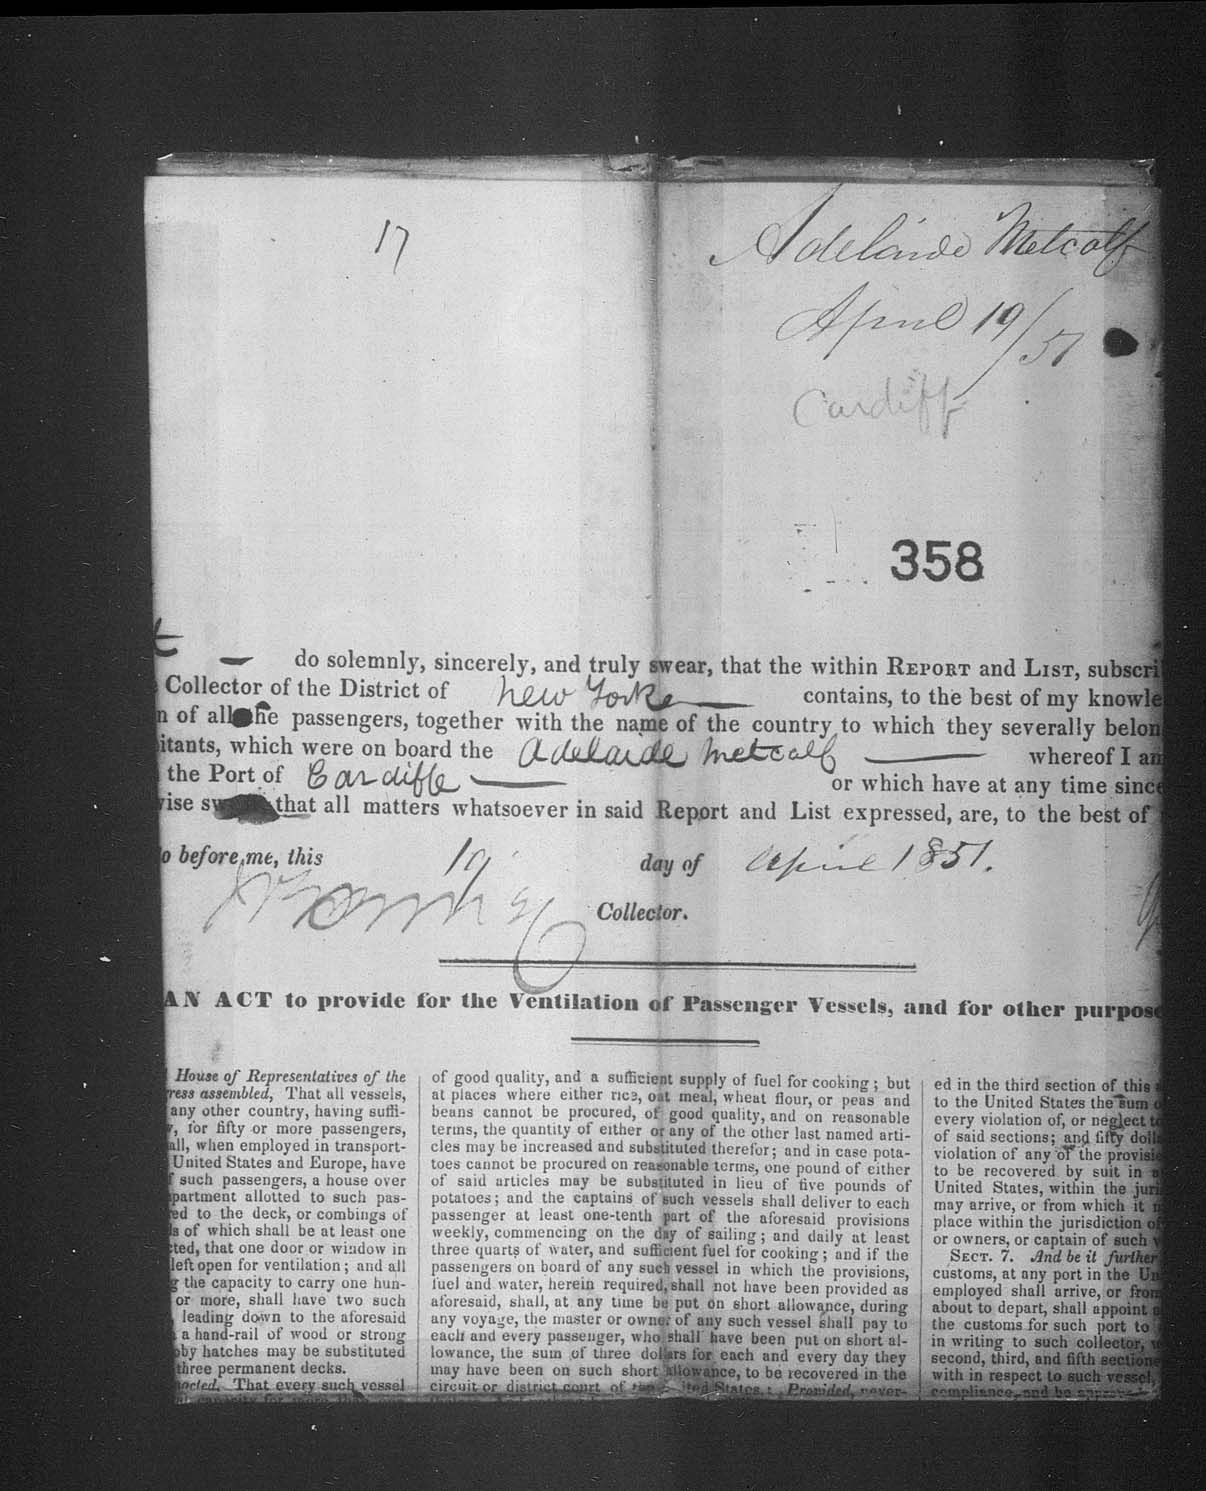 17
Adelaide Metcalf
April 19/51
Cardiff
358
do solemnly, sincerely, and truly swear, that the within REPORT and LIST, subscri
Collector of the District of New York contains, to the best of my knowle
n of all the passengers, together with the name of the country to which they severally belon
itants, which were on board the Adelaide Metcalf whereof I am
the Port of Cardiffe or which have at any time since
wise swear that all matters whatsoever in said Report and List expressed, are, to the best of
o before me, this 19 day of April 1851.
Collector.
AN ACT to provide for the Ventilation of Passenger Vessels, and for other purpose
House of Representatives of the
ress assembled, That all vessels,
any other country, having suffi-
, for fifty or more passengers,
all, when employed in transport-
United States and Europe, have
f such passengers, a house over
partment allotted to such pas-
ed to the deck, or combings of
ls of which shall be at least one
cted, that one door or window in
left open for ventilation; and all
g the capacity to carry one hun-
or more, shall have two such
leading down to the aforesaid
a hand-rail of wood or strong
oby hatches may be substituted
three permanent decks.
nacted, That every such vessel
of good quality, and a sufficient supply of fuel for cooking; but
at places where either rice, oat meal, wheat flour, or peas and
beans cannot be procured, of good quality, and on reasonable
terms, the quantity of either or any of the other last named arti-
cles may be increased and substituted therefor; and in case pota-
toes cannot be procured on reasonable terms, one pound of either
of said articles may be substituted in lieu of five pounds of
potatoes; and the captains of such vessels shall deliver to each
passenger at least one-tenth part of the aforesaid provisions
weekly, commencing on the day of sailing; and daily at least
three quarts of water, and sufficient fuel for cooking; and if the
passengers on board of any such vessel in which the provisions,
fuel and water, herein required, shall not have been provided as
aforesaid, shall, at any time be put on short allowance, during
any voyage, the master or owner of any such vessel shall pay to
each and every passenger, who shall have been put on short al-
lowance, the sum of three dollars for each and every day they
may have been on such short allowance, to be recovered in the
circuit or district court of the United States: Provided, never-
ed in the third section of this
to the United States the sum o
every violation of, or neglect to
of said sections; and fifty dolla
violation of any of the provisio
to be recovered by suit in a
United States, within the juri
may arrive, or from which it
place within the jurisdiction of
or owners, or captain of such v
SECT. 7. And be it further
customs, at any port in the Un
employed shall arrive, or from
about to depart, shall appoint
the customs for such port to
in writing to such collector,
second, third, and fifth sections
with in respect to such vessel,
compliance, and be